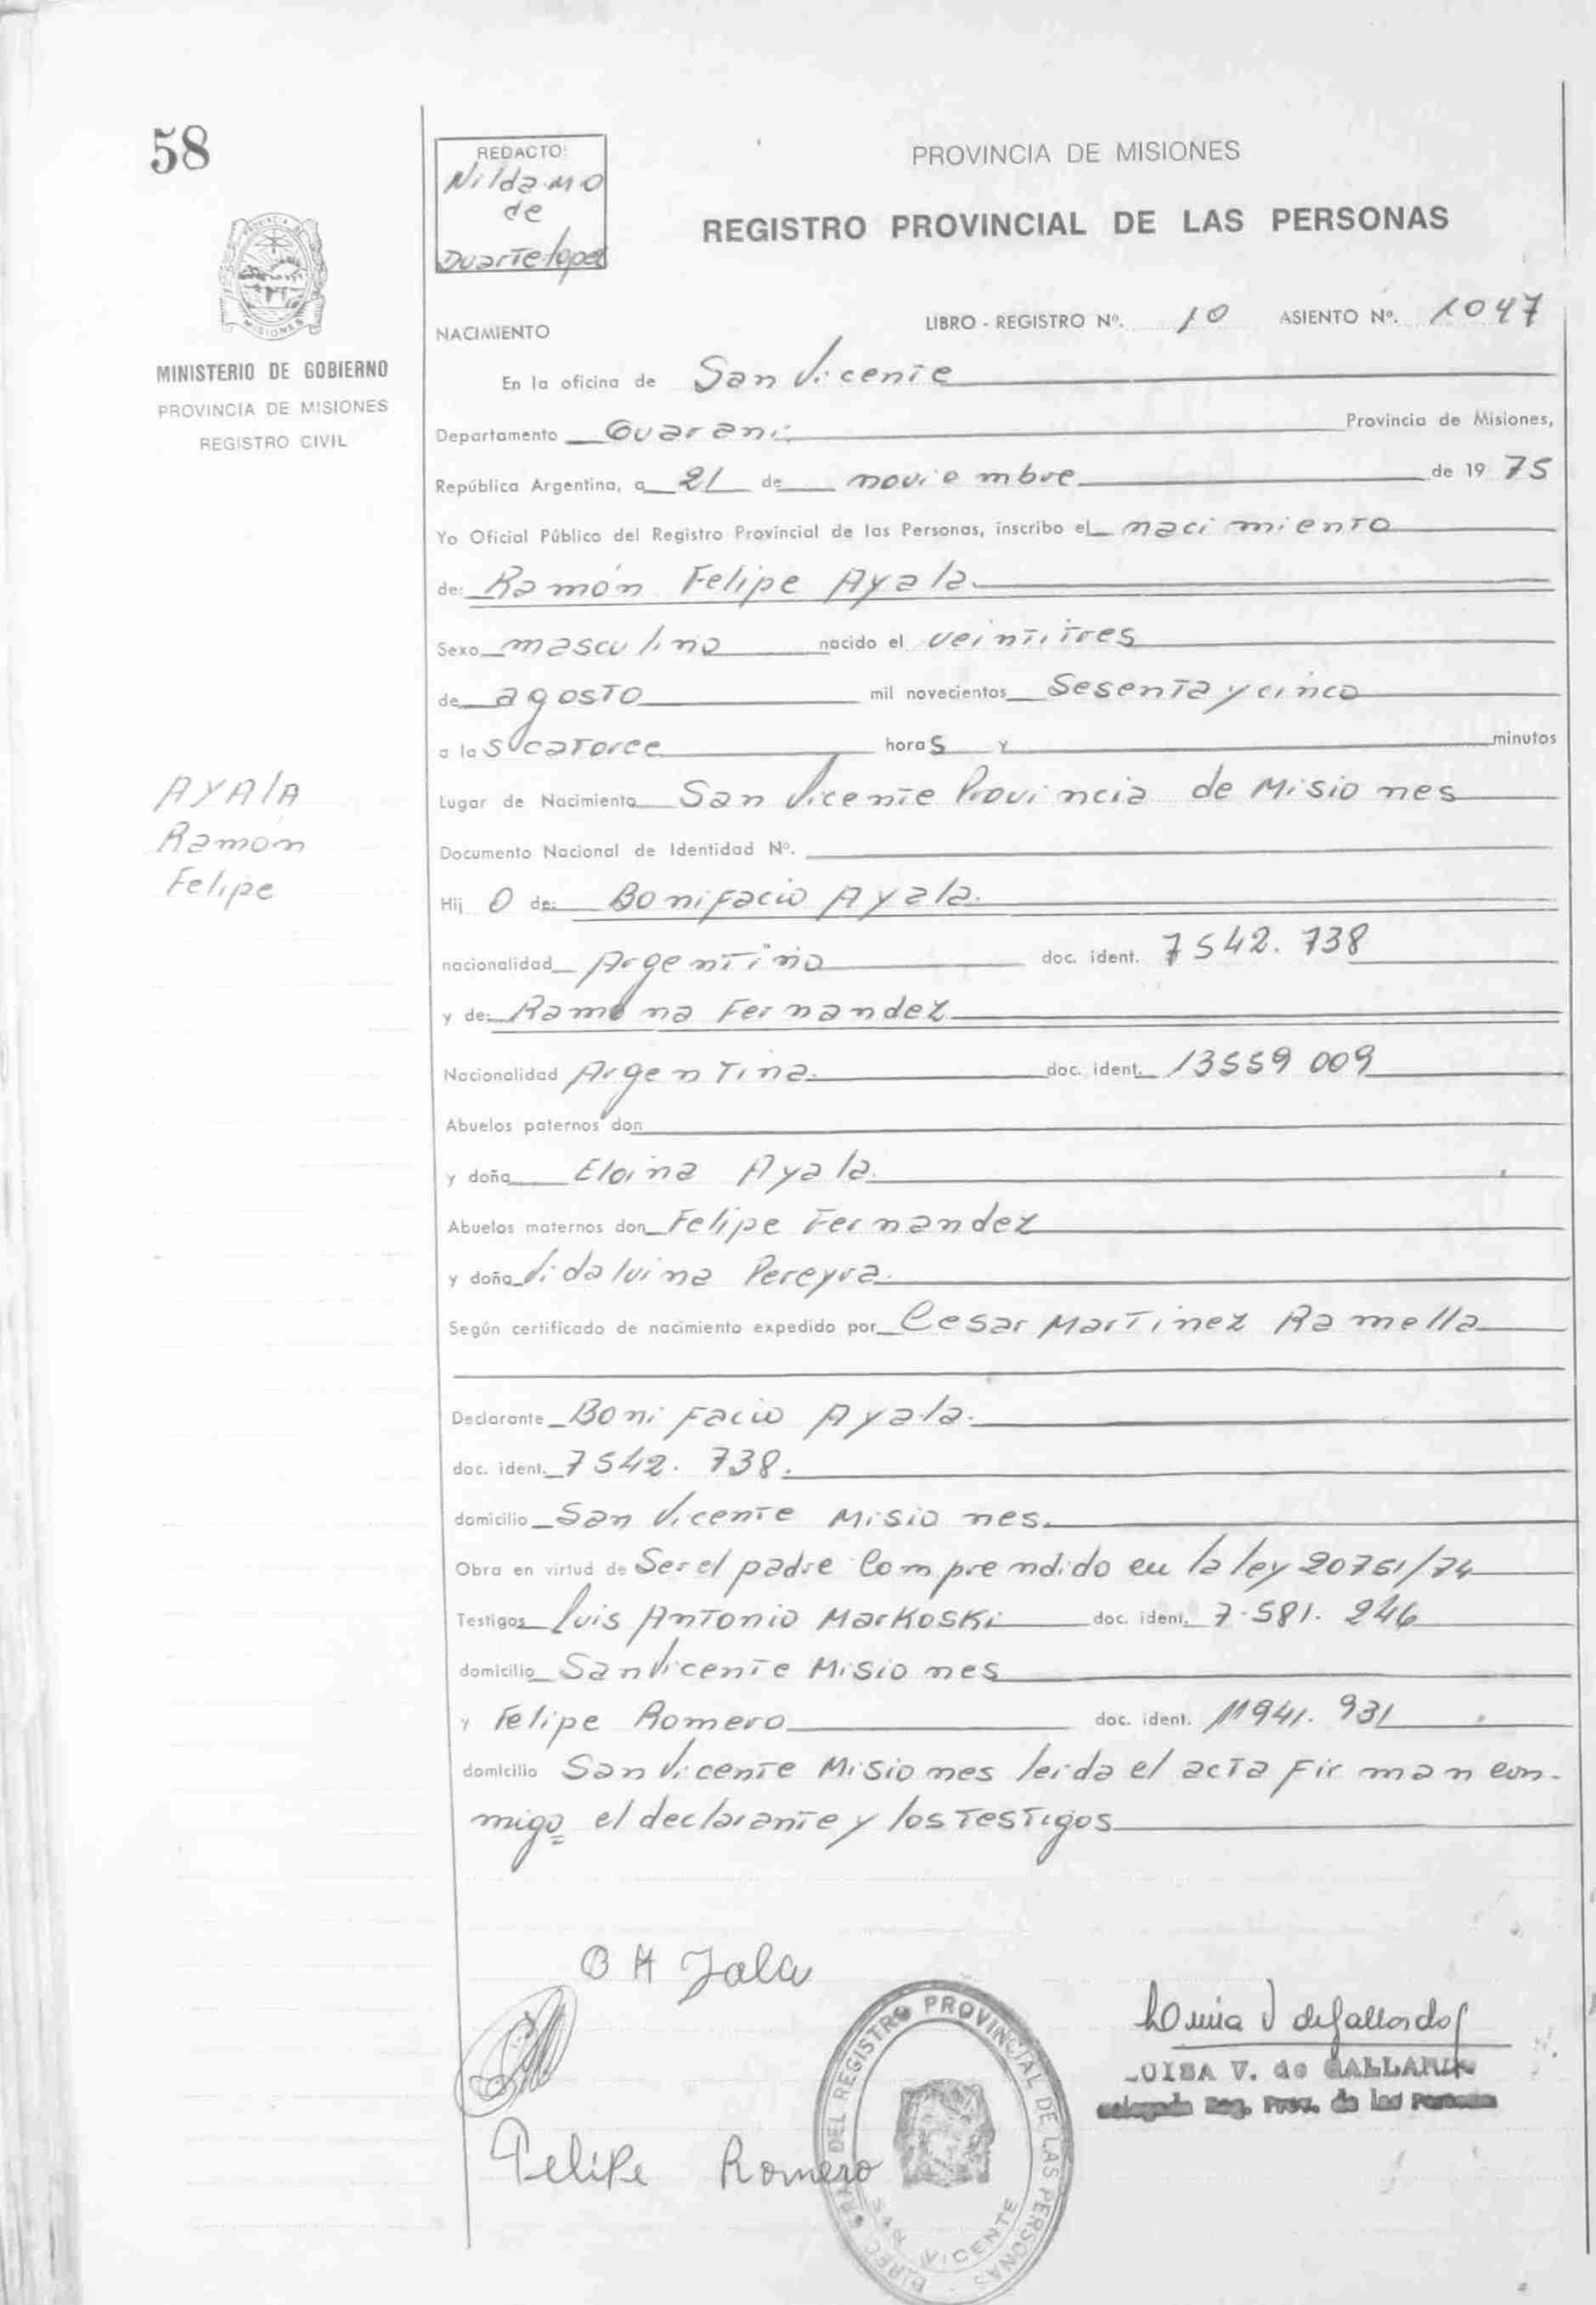 58
REDACTO:
Nilda M O
de
Duarte Lopez
PROVINCIA DE MISIONES
REGISTRO PROVINCIAL DE LAS PERSONAS
MISIONES
MINISTERIO DE GOBIERNO
PROVINCIA DE MISIONES
REGISTRO CIVIL
NACIMIENTO
LIBRO - REGISTRO Nº. 10 ASIENTO Nº. 1047
En la oficina de San Vicente
Departamento Guarani Provincia de Misiones,
República Argentina, a 21 de noviembre de 1975
Yo Oficial Público del Registro Provincial de las Personas, inscribo el nacimiento
de: Ramón Felipe Ayala
Sexo masculino nacido el veintitres
de agosto mil novecientos Sesenta y cinco
a las catorce horas y minutos
Lugar de Nacimiento San Vicente Provincia de Misiones
AYAlA
Ramón
Felipe
Documento Nacional de Identidad Nº.
Hijo de: Bonifacio Ayala.
nacionalidad Argentino doc. ident. 7542.738
y de: Ramona Fernandez
Nacionalidad Argentina doc. ident. 13559 009
Abuelos paternos don
y doña Eloina Ayala.
Abuelos maternos don Felipe Fernandez
y doña Vidalvina Pereyra.
Según certificado de nacimiento expedido por Cesar Martinez Ramella
Declarante Bonifacio Ayala.
doc. ident. 7542.738.
domicilio San Vicente Misiones.
Obra en virtud de Ser el padre Comprendido en la ley 20751/74
Testigos Luis Antonio Markoski doc. ident. 7.581.246
domicilio San Vicente Misiones
y Felipe Romero doc. ident. 11941.931
domicilio San Vicente Misiones leida el acta Firman con-
migo el declarante y los Testigos
B A Jala
Felipe Romero
DIREC. GRAL DEL REGISTRO PROVINCIAL DE LAS PERSONAS
SAN VICENTE
V. de GALLARDO
Reg. Prov. de las Personas